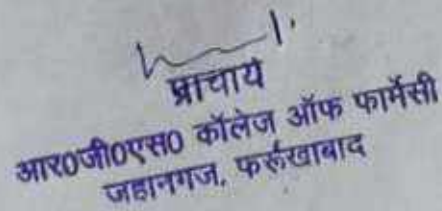 प्राचार्य
आर0जी0एस0 कॉलेज ऑफ फार्मेसी
जहानगंज, फर्रूखाबाद